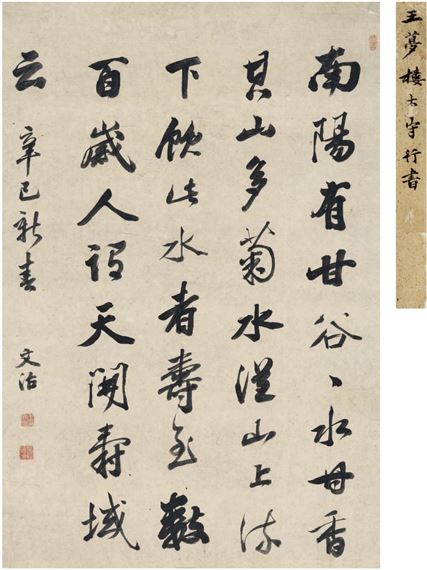 王夢樓大字行書
南陽有甘谷、水甘香
其山多菊水從山上流
下飲此水者壽至數
百歲人謂天開壽域
云 辛巳新春 文治